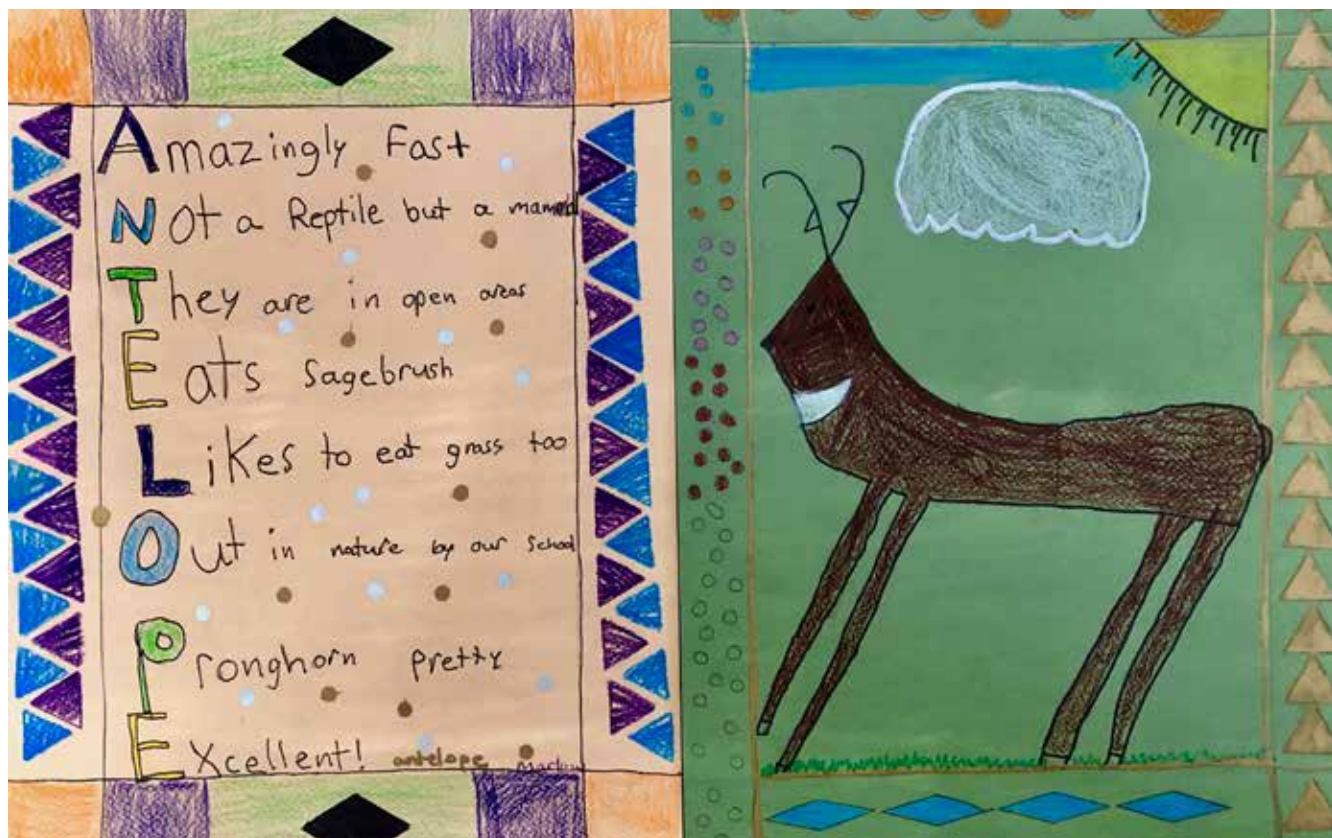 Amazingly Fast
Not a Reptile but a mammal
They are in open areas
Eats Sagebrush
Likes to eat grass too
Out in nature by our School
Pronghorn pretty
Excellent! antelope